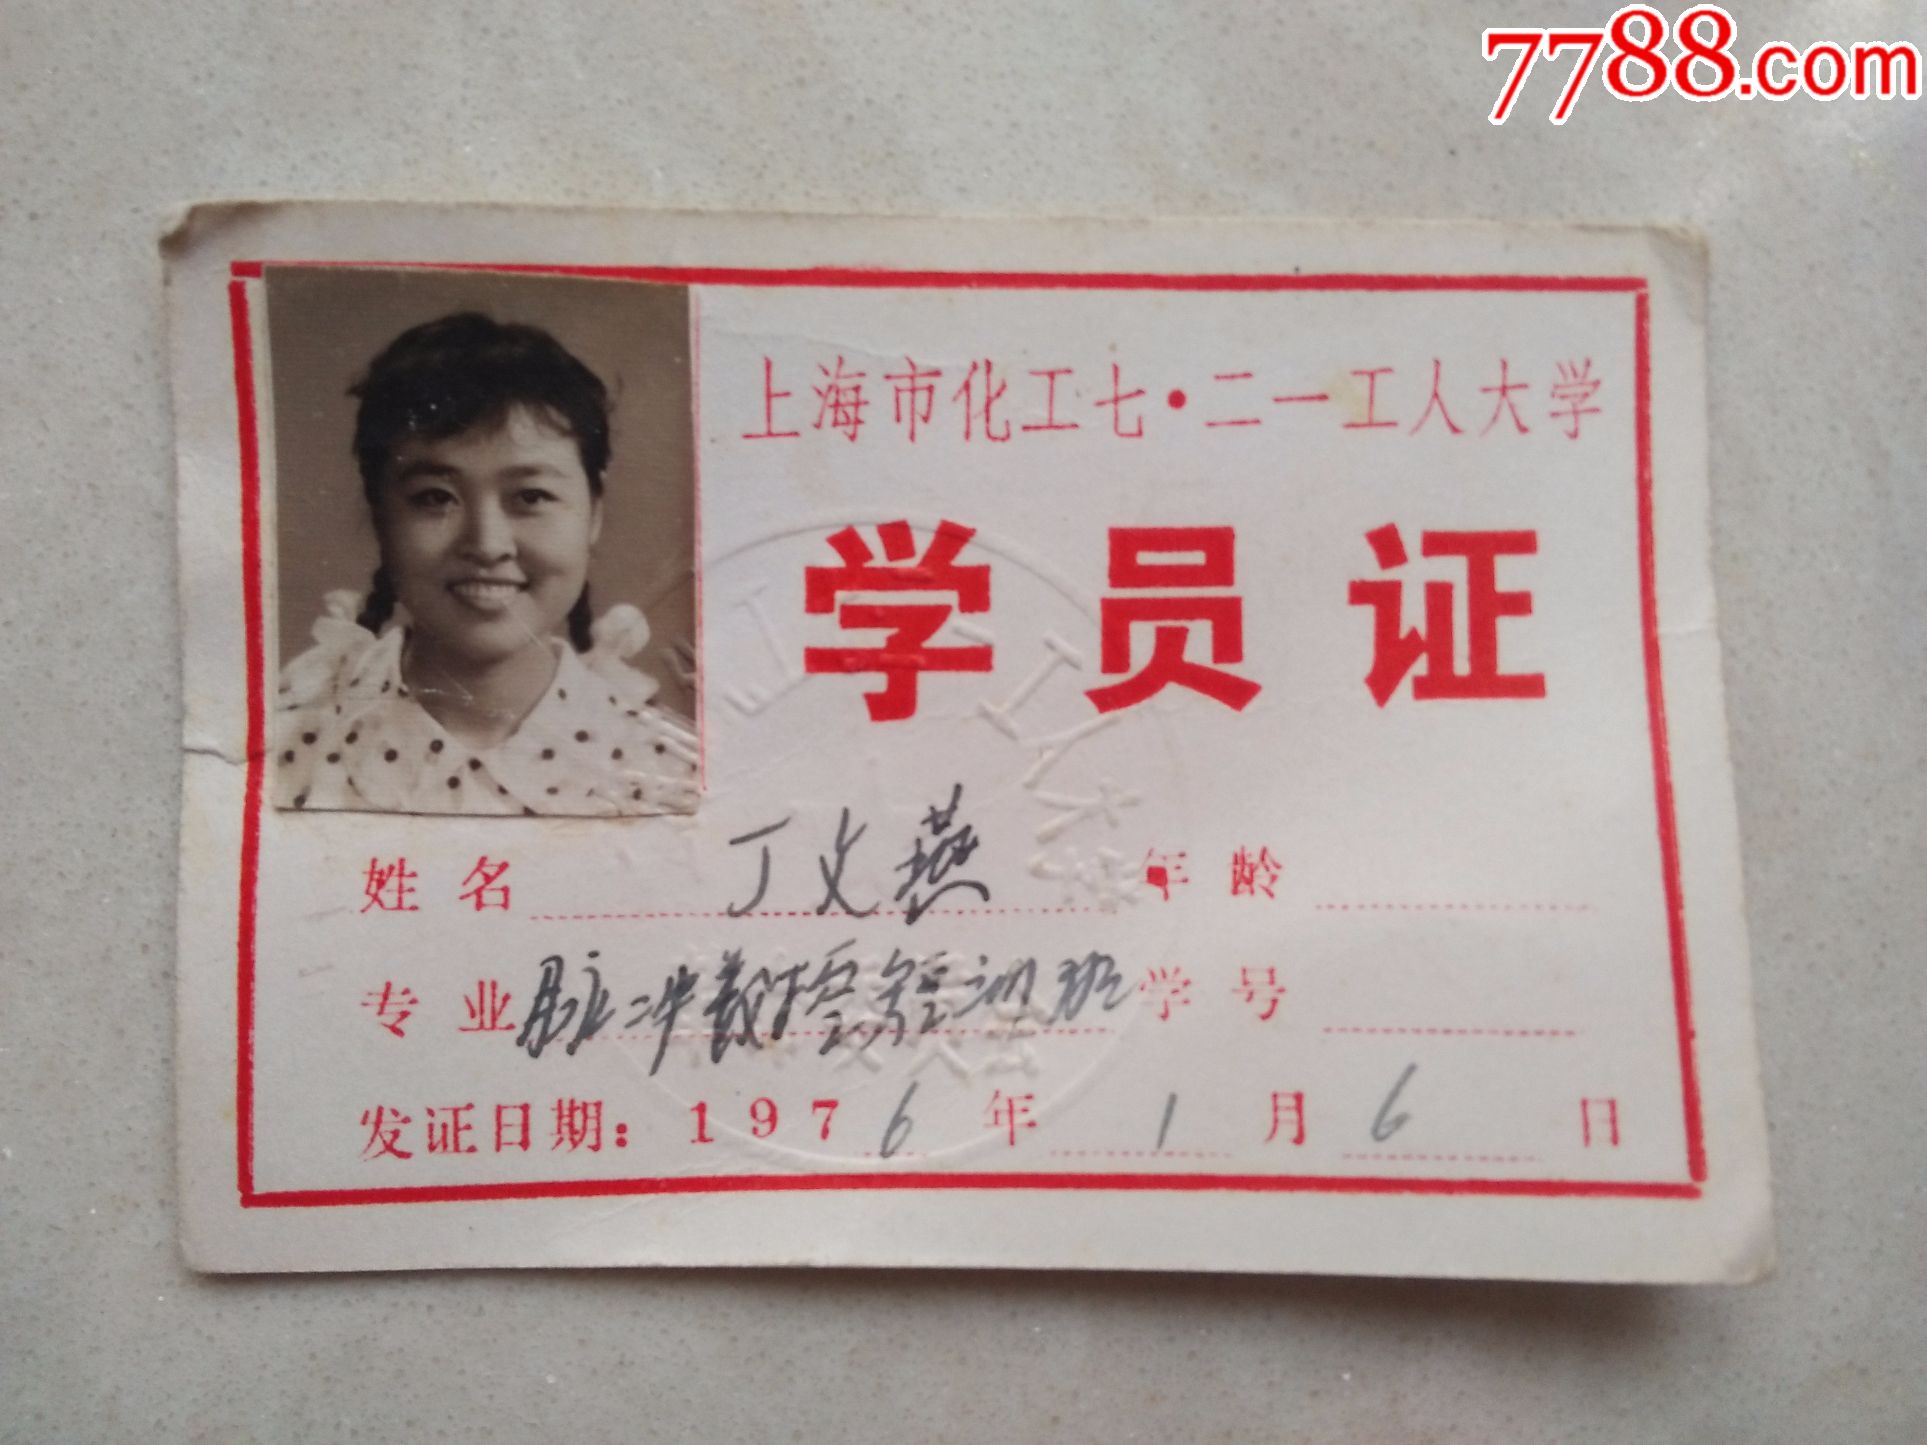 7788.com
上海市化工七·二一工人大学
学员证
姓名 丁文燕 年龄
专业 脉冲载拾短训班 学号
发证日期：1976年1月6日